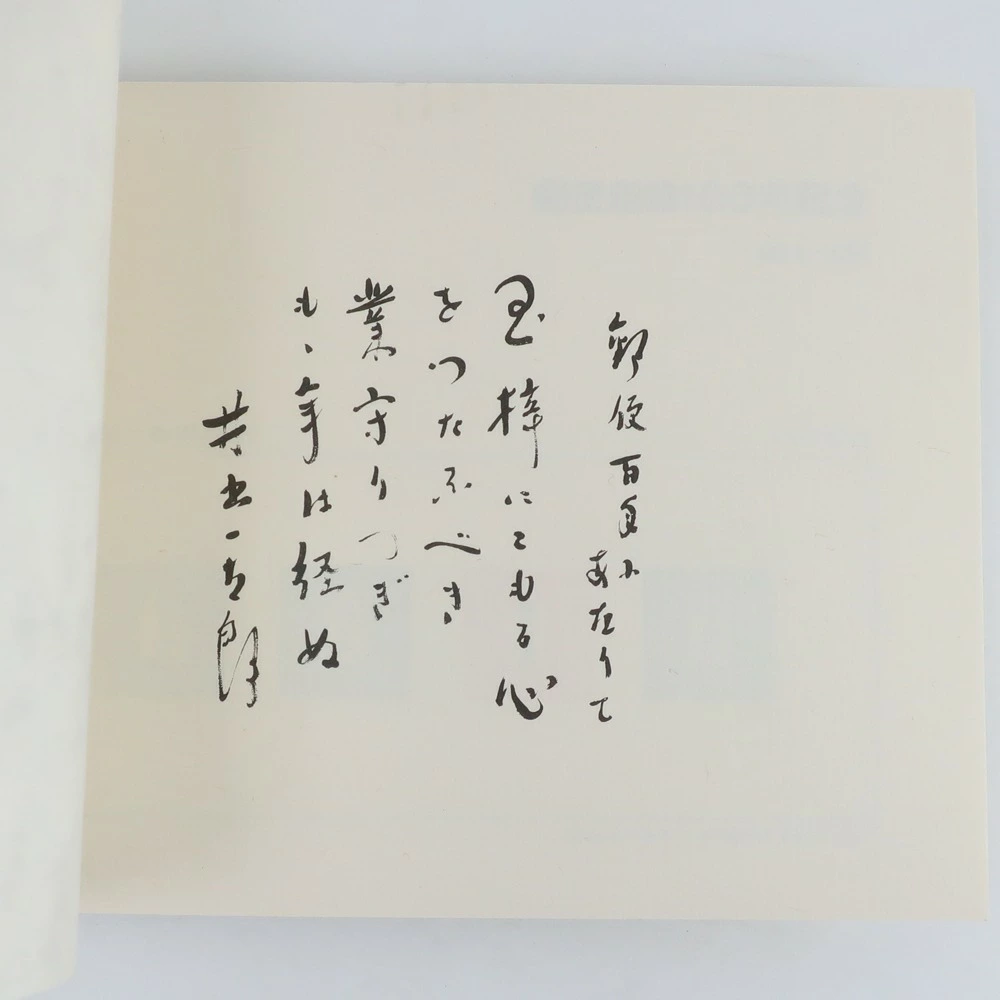 郵便百年に
あたりて
玉梓にこもる心
をつたふべき
業守りつぎ
もゝ年は経ぬ
井出一太郎